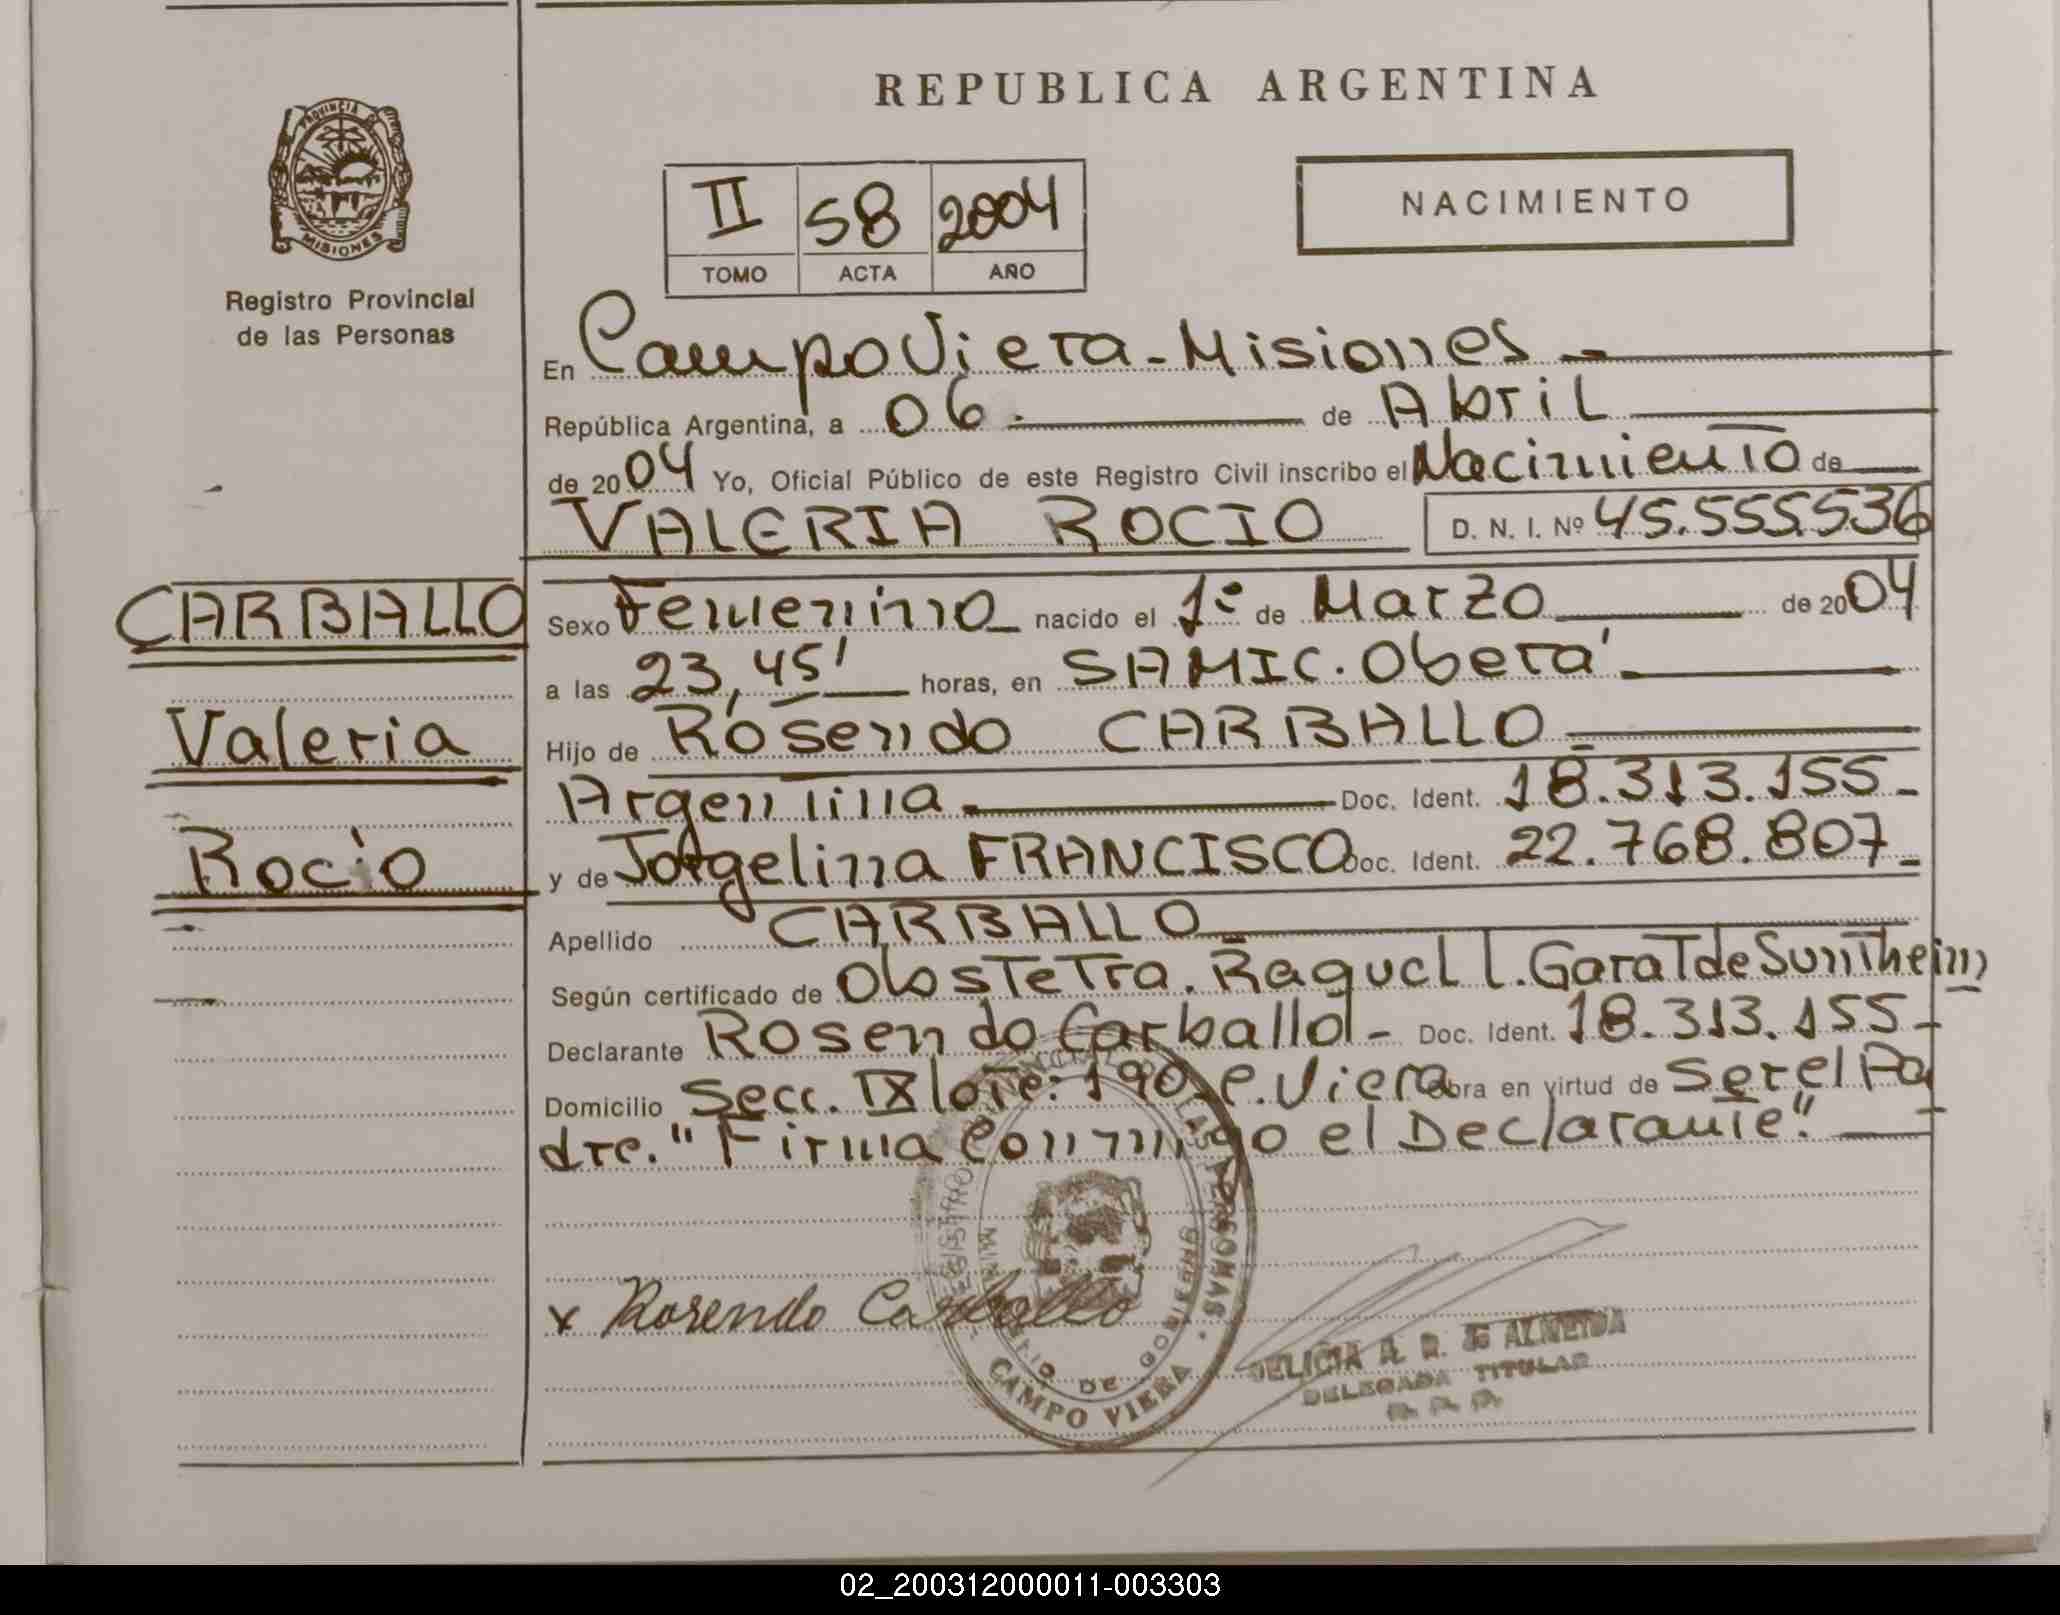 REPUBLICA ARGENTINA
PROVINCIA DE
MISIONES
Registro Provincial
de las Personas
II 58 2004
TOMO ACTA AÑO
NACIMIENTO
En Campo Viera - Misiones -
República Argentina, a 06. de Abril
de 2004 Yo, Oficial Público de este Registro Civil inscribo el Nacimiento de
VALERIA ROCIO D. N. I. Nº 45.555.536
CARBALLO
Valeria
Rocio
Sexo Femenino nacido el 1º de Marzo de 2004
a las 23,45' horas, en SAMIC. Oberá
Hijo de Rosendo CARBALLO
Argentina Doc. Ident. 18.313.155-
y de Jorgelina FRANCISCO Doc. Ident. 22.768.807-
Apellido CARBALLO
Según certificado de Obstetra. Raquel l. Garat de Suntheim
Declarante Rosendo Carballo - Doc. Ident. 18.313.155-
Domicilio Secc. IX lote: 190. C. Viera obra en virtud de ser el Pa
dre. "Firma Conmigo el Declarante".
x Rosendo Carballo
DE LAS PERSONAS.
DE GOBIERNO
CAMPO VIERA
DELICIA A. R. DE ALMEIDA
DELEGADA TITULAR
02_200312000011-003303